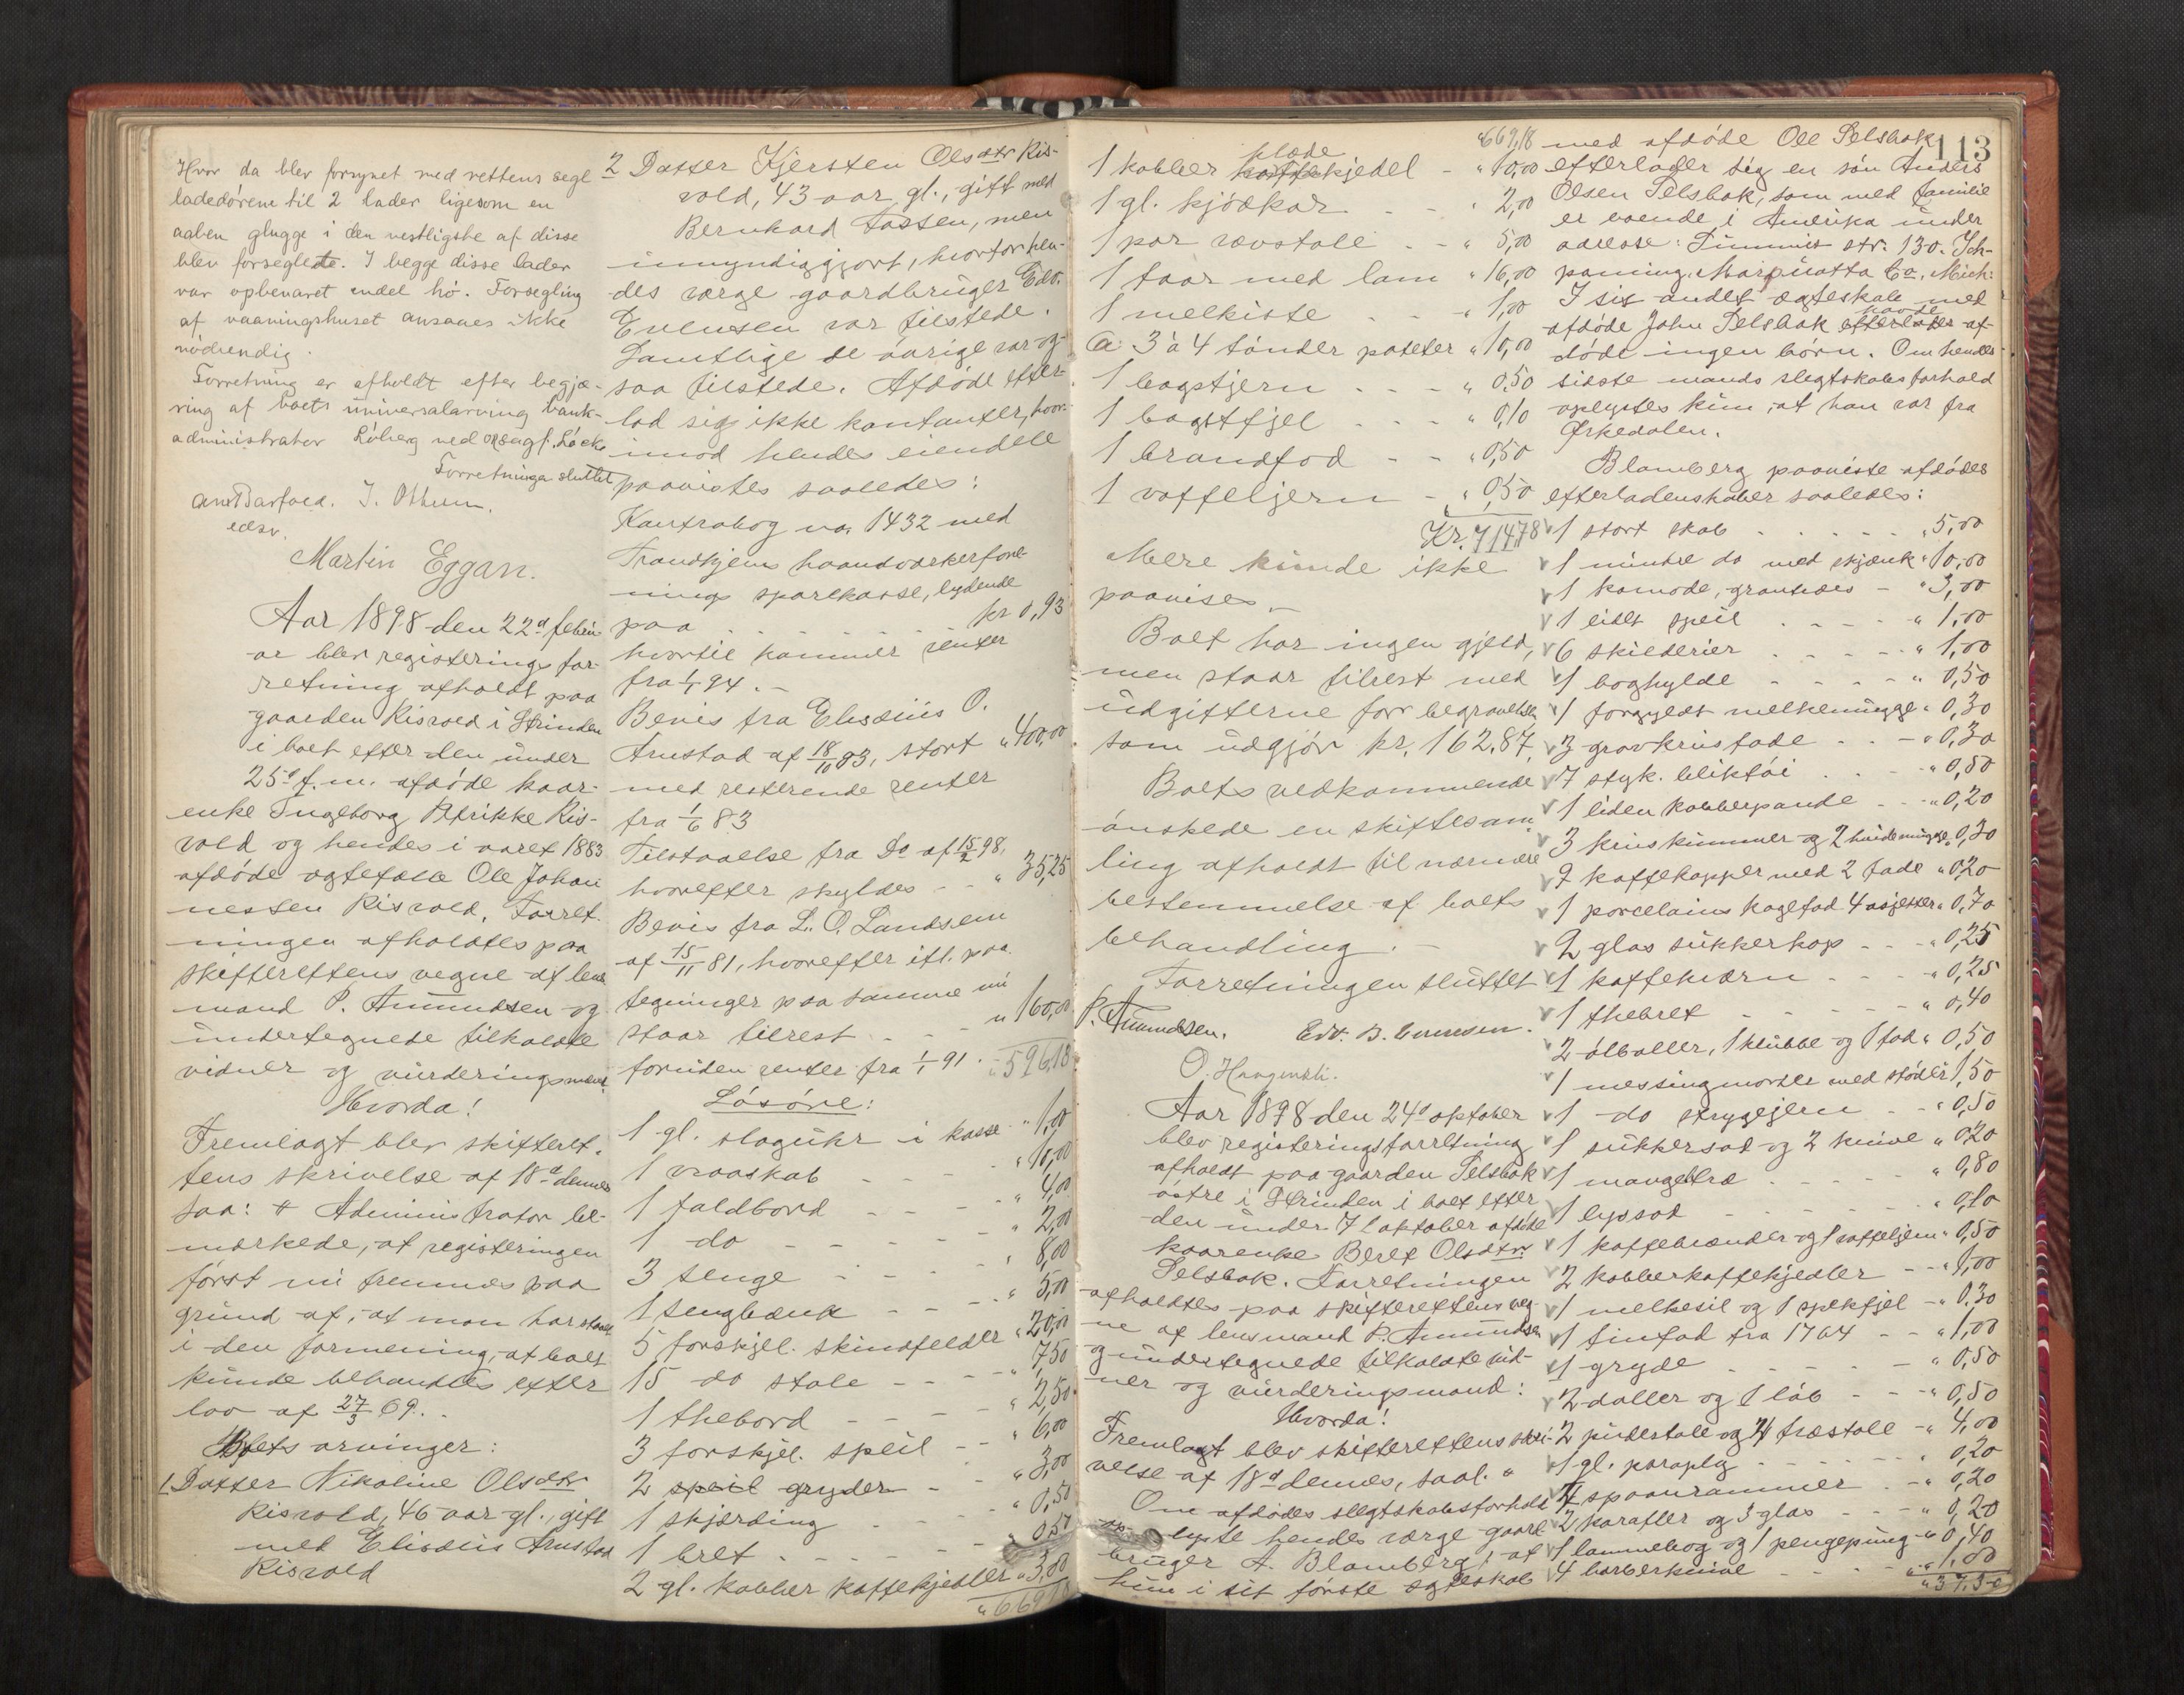 Hvor da blev forsynet med rettens segl
ladedörene til 2 lader ligesom en
aaben glugge i den vestligste af disse
blev forseglede. I begge disse lader
var opbevaret endel hö. Forsegling
af vaaningshuset ansaaes ikke
nödvendig.
Forretning er afholdt efter begjæ-
ring af boets universalarving bank-
administrator Löberg ved orsagf. Löcke
Forretninga sluttet
J. Othum.
edsv.
Martin Eggan.
Aar 1898 den 22d febru-
ar blev registeringsfor-
retning afholdt paa
gaarden Risvold i Strinden
i boet efter den under
25d f.m. afdöde kaar-
enke Ingeborg Petrikke Ris-
vold og hendes i aaret 1883
afdöde ægtefælle Ole Johan
nessen Risvold. Forret-
ningen afholdtes paa
skifterettens vegne af lens
mand P. Amundsen og
undertegnede tilkaldte
vidner og vurderingsmænd.
Hvorda!
Fremlagt blev skifteret-
tens skrivelse af 18d dennes
saa: # Administrator be-
mærkede, at registeringen
först nu fremmes paa
grund af, at man har staaet
i den formening, at boet
kunde behandles efter
lov af 27/3 69.
Boets arvinger:
1. Datter Nikoline Olsdtr
Risvold, 46 aar gl., gift
med Elisæus Arnstad
Risvold
2 Datter Kjersten Olsdtr Ris-
vold, 43 aar gl., gift med
Bernhard Fossen, men
umyndiggjort, hvorfor hen-
des værge gaardbruger Edv.
Evensen var tilstede.
Samtlige de övrige var og-
saa tilstede. Afdöde efter-
lod sig ikke kontanter, hvor-
imod hendes eiendele
paavistes saaledes:
Kontrabog no. 1432 med
Trondhjems haandværkerfore-
nings sparekasse, lydende
paa . . . . . . kr 0,93
hvortil kommer renter
fra 1/1 94. -
Bevis fra Elisæus O.
Arnstad af 18/10 83, stort " 400,00
med resterende renter
fra 1/6 83
Tilstaaelse fra Do af 15/2 98,
hvorefter skyldes - - " 35,25
Bevis fra L. O. Landsem
af 15/11 81, hvorefter ifl. paa-
tegninger paa samme nu
staar tilrest - - - " 160,00
foruden renter fra 1/1 91. - 596,18
Lösöre:
1 gl. slaguhr i kasse - " 1,00
1 vraaskab - - - " 10,00
1 faldbord - - - " 4,00
1 do - - - - " 2,00
3 senge - - - " 8,00
1 sengbænk - - - " 5,00
5 forskjel. skindfelder " 20,00
15 do stole - - - " 7,50
1 thebord - - - " 2,50
3 forskjel. speil - - " 6,00
2 speil gryder - - " 3,00
1 skjærding - - - " 0,50
1 bret - - - - " 0,50
2 gl. kobber kaffekjedler " 3,00
" 669,18
113
" 669,18
1 kobber kaffe flade kjedel - " 10,00
1 gl. kjödkar - - " 2,00
1 par vævstole - - " 5,00
1 faar med lam " 16,00
1 melkiste - - " 1,00
a: 3 à 4 tönder poteter " 10,00
1 bagstjern - - - " 0,50
1 bagstfjel - - - " 0,10
1 brandfod - - " 0,50
1 voffeljern - - " 0,50
Kr. 714,78
Mere kunde ikke
paavises. -
Boet har ingen gjeld,
men staar tilrest med
udgifterne for begravelsen
som udgjör kr. 162,87,
Boets vedkommende
önskede en skiftesam-
ling afholdt til nærmere
bestemmelse af boets
behandling. -
Forretningen sluttet
P. Amundsen. Edv. B. Evensen.
O. Haugmeli.
Aar 1898 den 24d oktober
blev registeringsforretning
afholdt paa gaarden Selsbak
östre i Strinden i boet efter
den under 7d oktober afdöde
kaarenke Beret Olsdtr
Selsbak. Forretningen
afholdtes paa skifterettens veg-
ne af lensmand P. Amundsen
og undertegnede tilkaldte vid-
ner og vurderingsmænd:
Hvorda!
Fremlagt blev skifterettens skri-
velse af 18d dennes, saal. "
Om afdödes slegtskabsforhold
oplyste hendes værge gaard-
bruger A. Blomberg, at
hun i sit förste ægteskab
med afdöde Ole Selsbak
efterlader sig en sön Anders
Olsen Selsbak, som med familie
er boende i Amerika under
adresse: Summit str. 130. Ish-
peming. Marquatta Co. Mich:
I sit andet ægteskab med
afdöde John Selsbak efterlader havde af-
döde ingen börn. Om hendes
sidste mands slegtskabsforhold
oplystes kun, at han var fra
Ørkedalen.
Blomberg paaviste afdödes
efterladenskaber saaledes:
1 stort skab . . . . . " 5,00
1 mindre do med skjænk " 10,00
1 komode, grantræes - " 3,00
1 lidet speil - - - " 1,00
6 skilderier - - - " 1,00
1 boghylde - - - " 0,50
1 forgyldt melkemugge " 0,30
3 gravkrusfade - - " 0,30
7 styk. bliktöi - - " 0,50
1 liden kobberpande - - " 0,20
3 kruskummer og 2 hvidemugge " 0,30
2 kaffekopper med 2 fade " 0,20
1 porcelains kagefad 4 asjetter " 0,70
2 glas sukkerkop - - " 0,25
1 kaffekværn - - - " 0,25
1 thebret - - - " 0,40
2 ölboller, 1 klubbe og 1 fad " 0,50
1 messingmorter med stöder 1,50
1 do strygejern - - " 0,50
1 sukkersax og 2 knive " 0,20
1 mangeltræ - - - " 0,80
1 lyssax - - - " 0,10
1 kaffebrænder og 1 voffeljern " 0,50
2 kobberkaffekjedler - - " 1,00
1 melkesil og 1 spekfjel - " 0,30
1 tinfad fra 1764 - - " 1,00
1 gryde - - - " 0,50
2 daller og 1 löb - - " 0,50
2 pudestole og 4 træstole - " 4,00
1 gl. paraply - - - " 0,20
4 spaanrammer - - " 0,20
2 karafler og 3 glas - - " 0,20
1 lommebog og 1 pengepung - " 0,40
4 barberknive - - - " 1,00
" 37,30